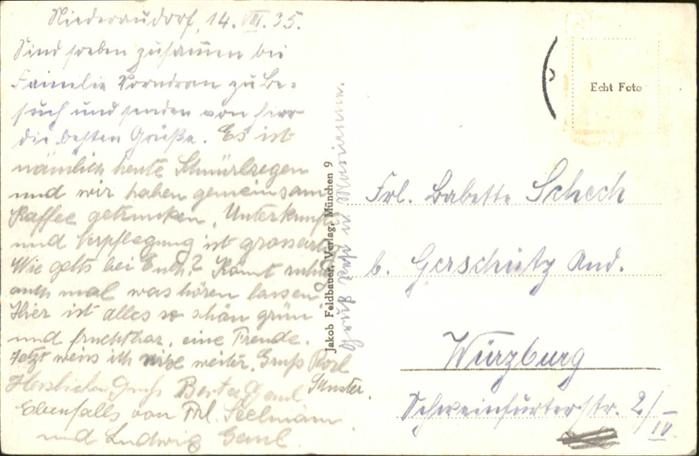 Niederaudorf, 14. VIII. 35.
Sind soeben zusammen bei
Familie Vorndran zu Be-
such und senden von hier
die besten Grüße. Es ist
nämlich heute Schnürlregen
und wir haben gemeinsam
Kaffee getrunken, Unterkunft
und Verpflegung ist grossartig
Wie gehts bei Euch? Kömt ruhig
auch mal was hören lassen.
Hier ist alles so schön grün
und fruchtbar, eine Freude.
Jetzt weis ich nix weiter. Gruß Rosl
Herzlichen Gruß Berta Gaul Schuster.
Ebenfalls von Frl. Seelmann
und Ludwig Gaul.
Jakob Feldbauer, Verlag, München 9
Echt Foto
Frl. Babette Schech
b. Gerschütz And.
Würzburg
Schweinfurterstr. 2/IV